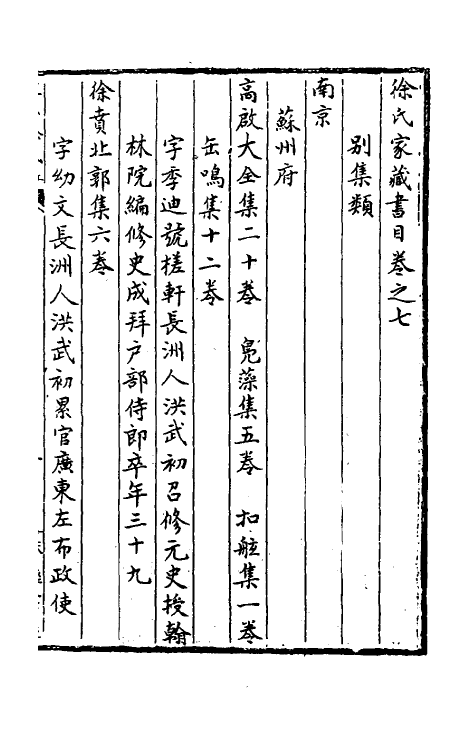 徐氏家藏書目卷之七
別集類
南京
蘇州府
高啟大全集二十卷　鳧藻集五卷　扣舷集一卷
缶鳴集十二卷
字季迪號槎軒長洲人洪武初召修元史授翰
林院編修史成拜户部侍郎卒年三十九
徐賁北郭集六卷
字幼文長洲人洪武初累官廣東左布政使